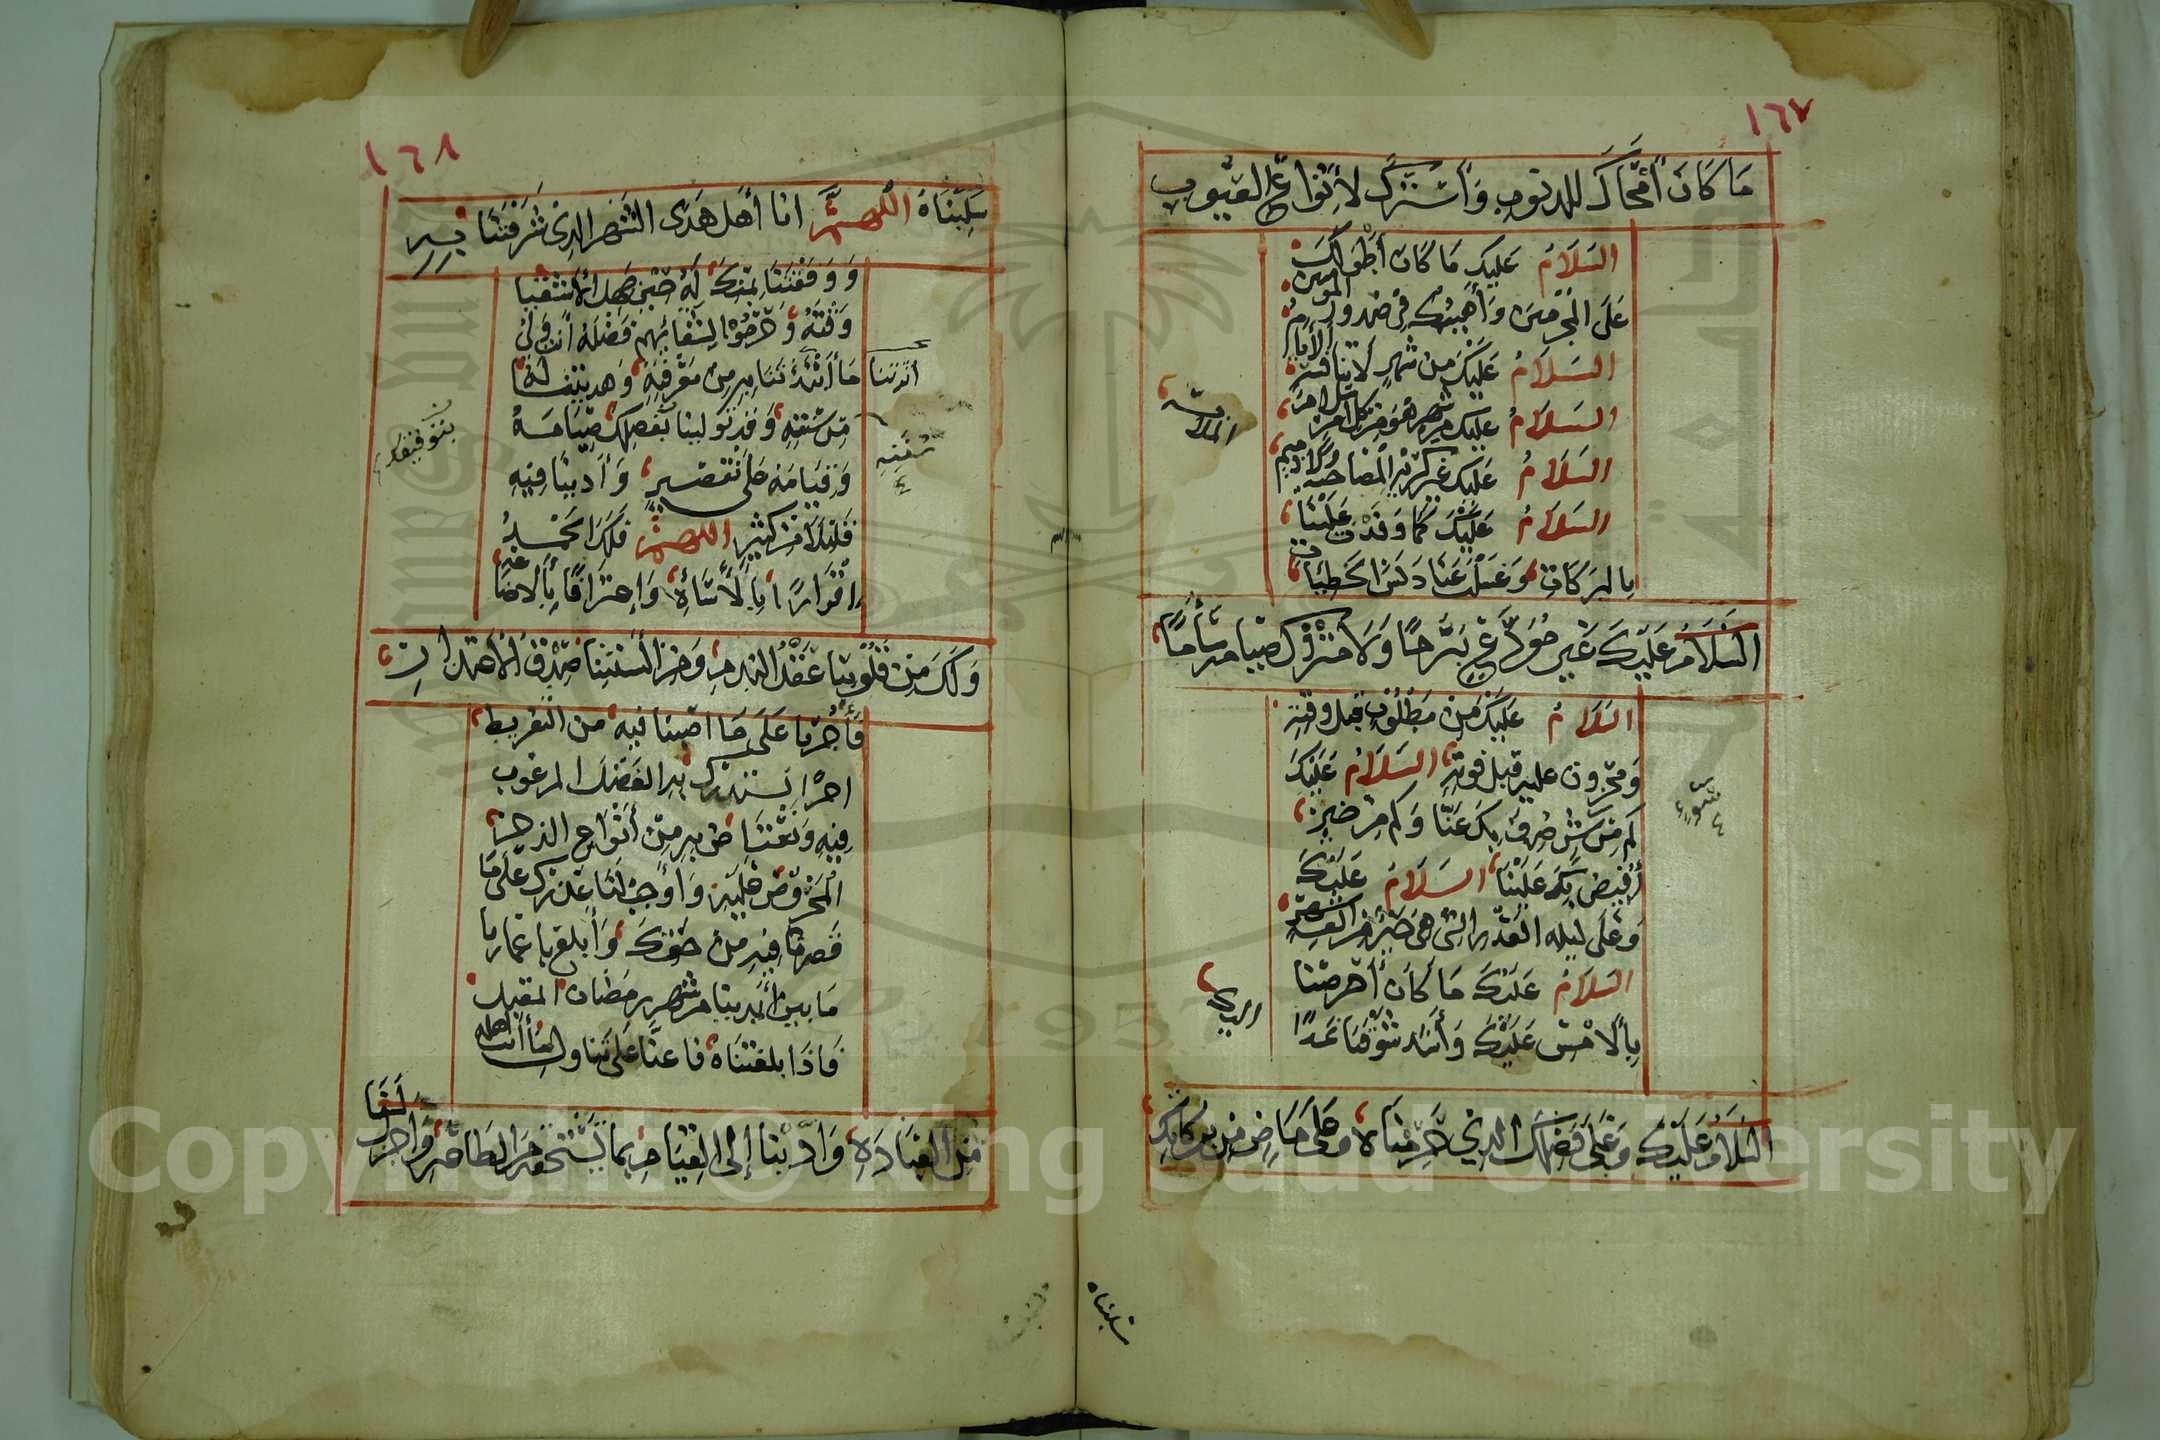 ١٦٧
مَا كَانَ أَمْحَاكَ لِلذنوبِ وَأَسْتَرَكَ لأَنْوَاعِ العُيُوبِ
السَلَامُ عَلَيكَ مَا كَانَ أَطْوَلَكَ
عَلَى المُجْرِمينَ وَأَهْيَبَكَ فِي صُدورِ المومنين
السَلَامُ عَلَيْكَ مِن شَهْرٍ لَا تُنَافِسُهُ الأَيَّامُ
السَلَامُ عَلَيكَ مِن شهرٍ هُوَ مِن كُلِ أَمرٍ سَلامٌ
السَلَامُ عَلَيكَ غَيرَ كَرِيهِ المُصَاحَبَةِ وَلَا ذميمِ
الملابسة
السَلَامُ عَلَيْكَ كَمَا وَفَدْتَ عَلَيْنَا
بِالبَرَكَاتِ وَغَسَلْتَ عَنَا دَنَسَ الخَطِيئَاتِ
السَّلَامُ عَلَيْكَ غَيرَ مُوَدَّعٍ بَرَمًا وَلَا مَتْرُوكٍ صِيَامُهُ سَأَمًا
السَلَامُ عَلَيْكَ مِنْ مَطْلُوبٍ قبل وقتِهِ
وَمَحْزونٍ عليهِ قبل فوتِهِ السَلَامُ عَلَيْكَ
كَم مِن سُوءٍ صُرِفَ بِكَ عَنَّا وَكَم مِن خيرٍ
سُوءٍ
أُفِيضَ بِكَ عَلَيْنَا السَلَامُ عَلَيْكَ
وَعَلَى ليله القَدْرِ التي هِيَ خَيْرٌ مِن الفِ شهر
السَلَامُ عَلَيْكَ مَا كَانَ أَحْرَصَنَا
بِالأَمْسِ عَلَيْكَ وَأَشَدَّ شَوْقَنَا غَدًا
اليك
السَّلَامُ عَلَيْكَ وَعَلَى فَضْلِكَ الذِي حُرِمْنَاهُ وَعَلَى مَاضٍ مِنْ بَرَكَاتِكَ
سلبناه
١٦٨
سُلِبْنَاهُ اللَّهُمَّ انا أَهْل هَذَى الشَهْر الذِي شَرَفْتَنَا بِهِ
وَ وَفَقْتَنَا بِمَنِّكَ لَهُ حِيْنَ جَهِلَ الأَشْقِيَا
وَقْتَهُ وَحُرِمُوْا لِشَقَائِهِم فَضْلَهُ أَنتَ وَلِيُّ
مَا أَثَرْتَنَا بِهِ مِن مَعْرِفَتِهِ وَهَدَيْتَنَا لَهُ
أثرتنا
مِن سُنَنِهِ وَقَدْ تَوَلينَا بتوفيقك صِيَامَهُ
سُنَّتِهِ
بتوفيقك
وَقِيَامَهُ عَلَى تَقْصِيرٍ وَأَدَّيْنَا فِيهِ
قَلِيلَا مِن كَثِيرٍ اللهُمَّ فَلَكَ الحَمْدُ
إِقْرَارً ا بِالأَسَاءَةِ وَإِعْتِرَافًا بِالاضَاعَةِ
وَلَكَ مِنْ قُلُوْبِنَا عَقْدُ النَدَمِ وَمِن أَلْسِنَتِنَا صِدْقُ الْأعْتِذَارِ
فَأْجُرْنَا عَلَى مَا اصَبْنَا فِيهِ من التَفْرِيطِ
اجْرًا نَسْتَدْرِكُ بِهِ الفَضْلَ المرغوب
فِيهِ وَنَعْتَاضُ بِهِ مِنْ أَنْوَاعِ الذخْرِ
المَحْرُوصِ عَلَيْهِ وَأَوْجِبْ لَنَا عُذْرَكَ عَلَى مَا
قَصَّرْنَا فِيهِ مِنْ حَقِّكَ وَأَبلغ بِاَعْمَارِنَا
مَا بين أَيْدِينَا مِن شَهْرِ رَمَضَان المقبل
فَاذَا بلغتنَاهُ فَاَعنَّا عَلَى تَنَاولِ مَا أَنت اهله
مِن العِبَادَةِ وَأَدِّنَا إلى القِيَامِ بِمَا يَسْتَحِقهُ مِن الطَاعَةِ وَاجْرِ لَنَا